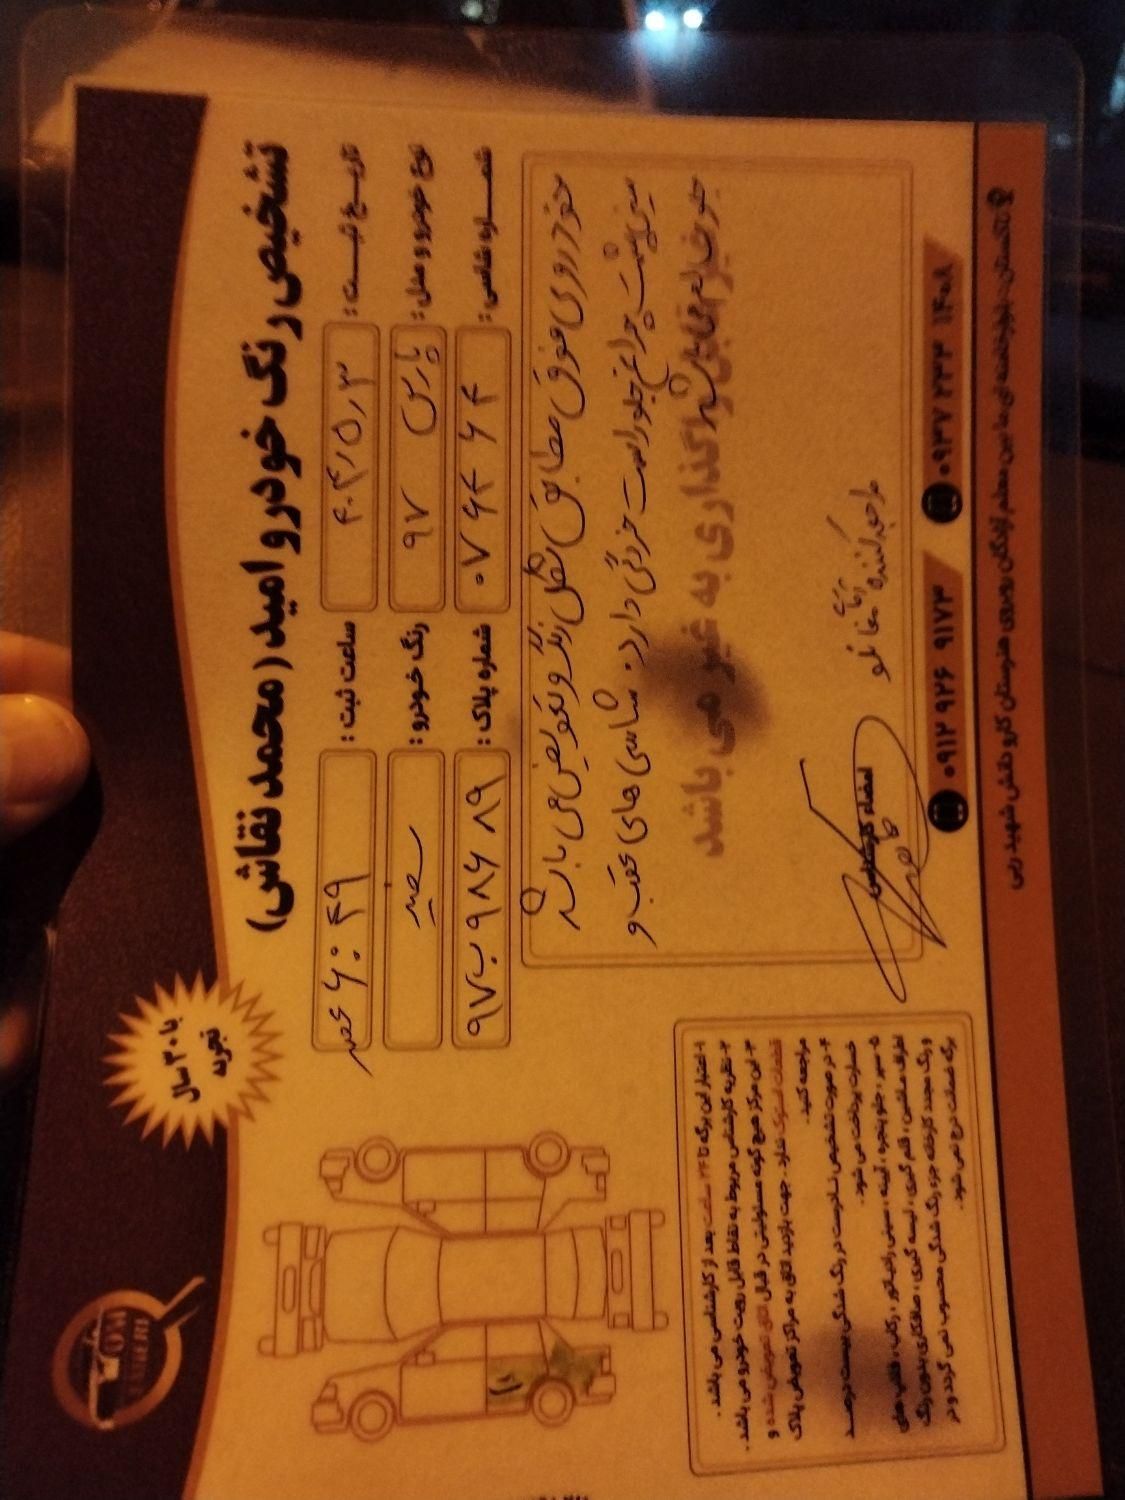 تشخیص رنگ خودرو امید (محمد نقاش)
تاریخ ثبت : ۴۰۴٫۵٫۳
ساعت ثبت : ۶:۴۹ عصر
نوع خودرو و مدل : پارس ۹۷
رنگ خودرو : سفید
شماره شاسی : ۰۷۶۴۶۴
شماره پلاک : ۹۷ب۹۸۶ ۸۹
خودروی فوق مطابق شکل رنگ و تعویض می باشد
سینی پشت چراغ جلو راست خردگی دارد. شاسی های عقب و
جلو
واگذاری به غیر نمی باشد
مراجعه کننده
امضاء کارشناس
با ۳۰ سال
تجربه
OMID
۱- اعتبار این برگه تا ۲۴ ساعت بعد از کارشناسی می باشد .
۲- نظریه کارشناس مربوط به نقاط قابل رویت خودرو می باشد .
۳- این مرکز هیچ گونه مسئولیتی در قبال اتاق تعویض شده و
قطعات استوک ندارد . جهت بازدید اتاق به مراکز تعویض پلاک
مراجعه کنید.
۴- در صورت تشخیص نادرست در رنگ شدگی بیست درصد
خسارت پرداخت می شود .
۵- سپر ، جلو پنجره ، آیینه ، سینی رادیاتور ، رکاب ، قالپاق های
اطراف ماشین ، قلم گیری ، لیسه گیری ، صافکاری بدون رنگ
و رنگ مجدد کارخانه جزء رنگ شدگی محسوب نمی گردد و در
برگه ضمانت درج نمی شود.
۰۹۱۲ ۹۲۶ ۹۱۷۳
۰۹۳۷ ۲۳۳ ۱۴۰۸
تاکستان، بلوار خامنه ای مابین معلم آزادگان روبروی هنرستان کاردانش شهید ربی